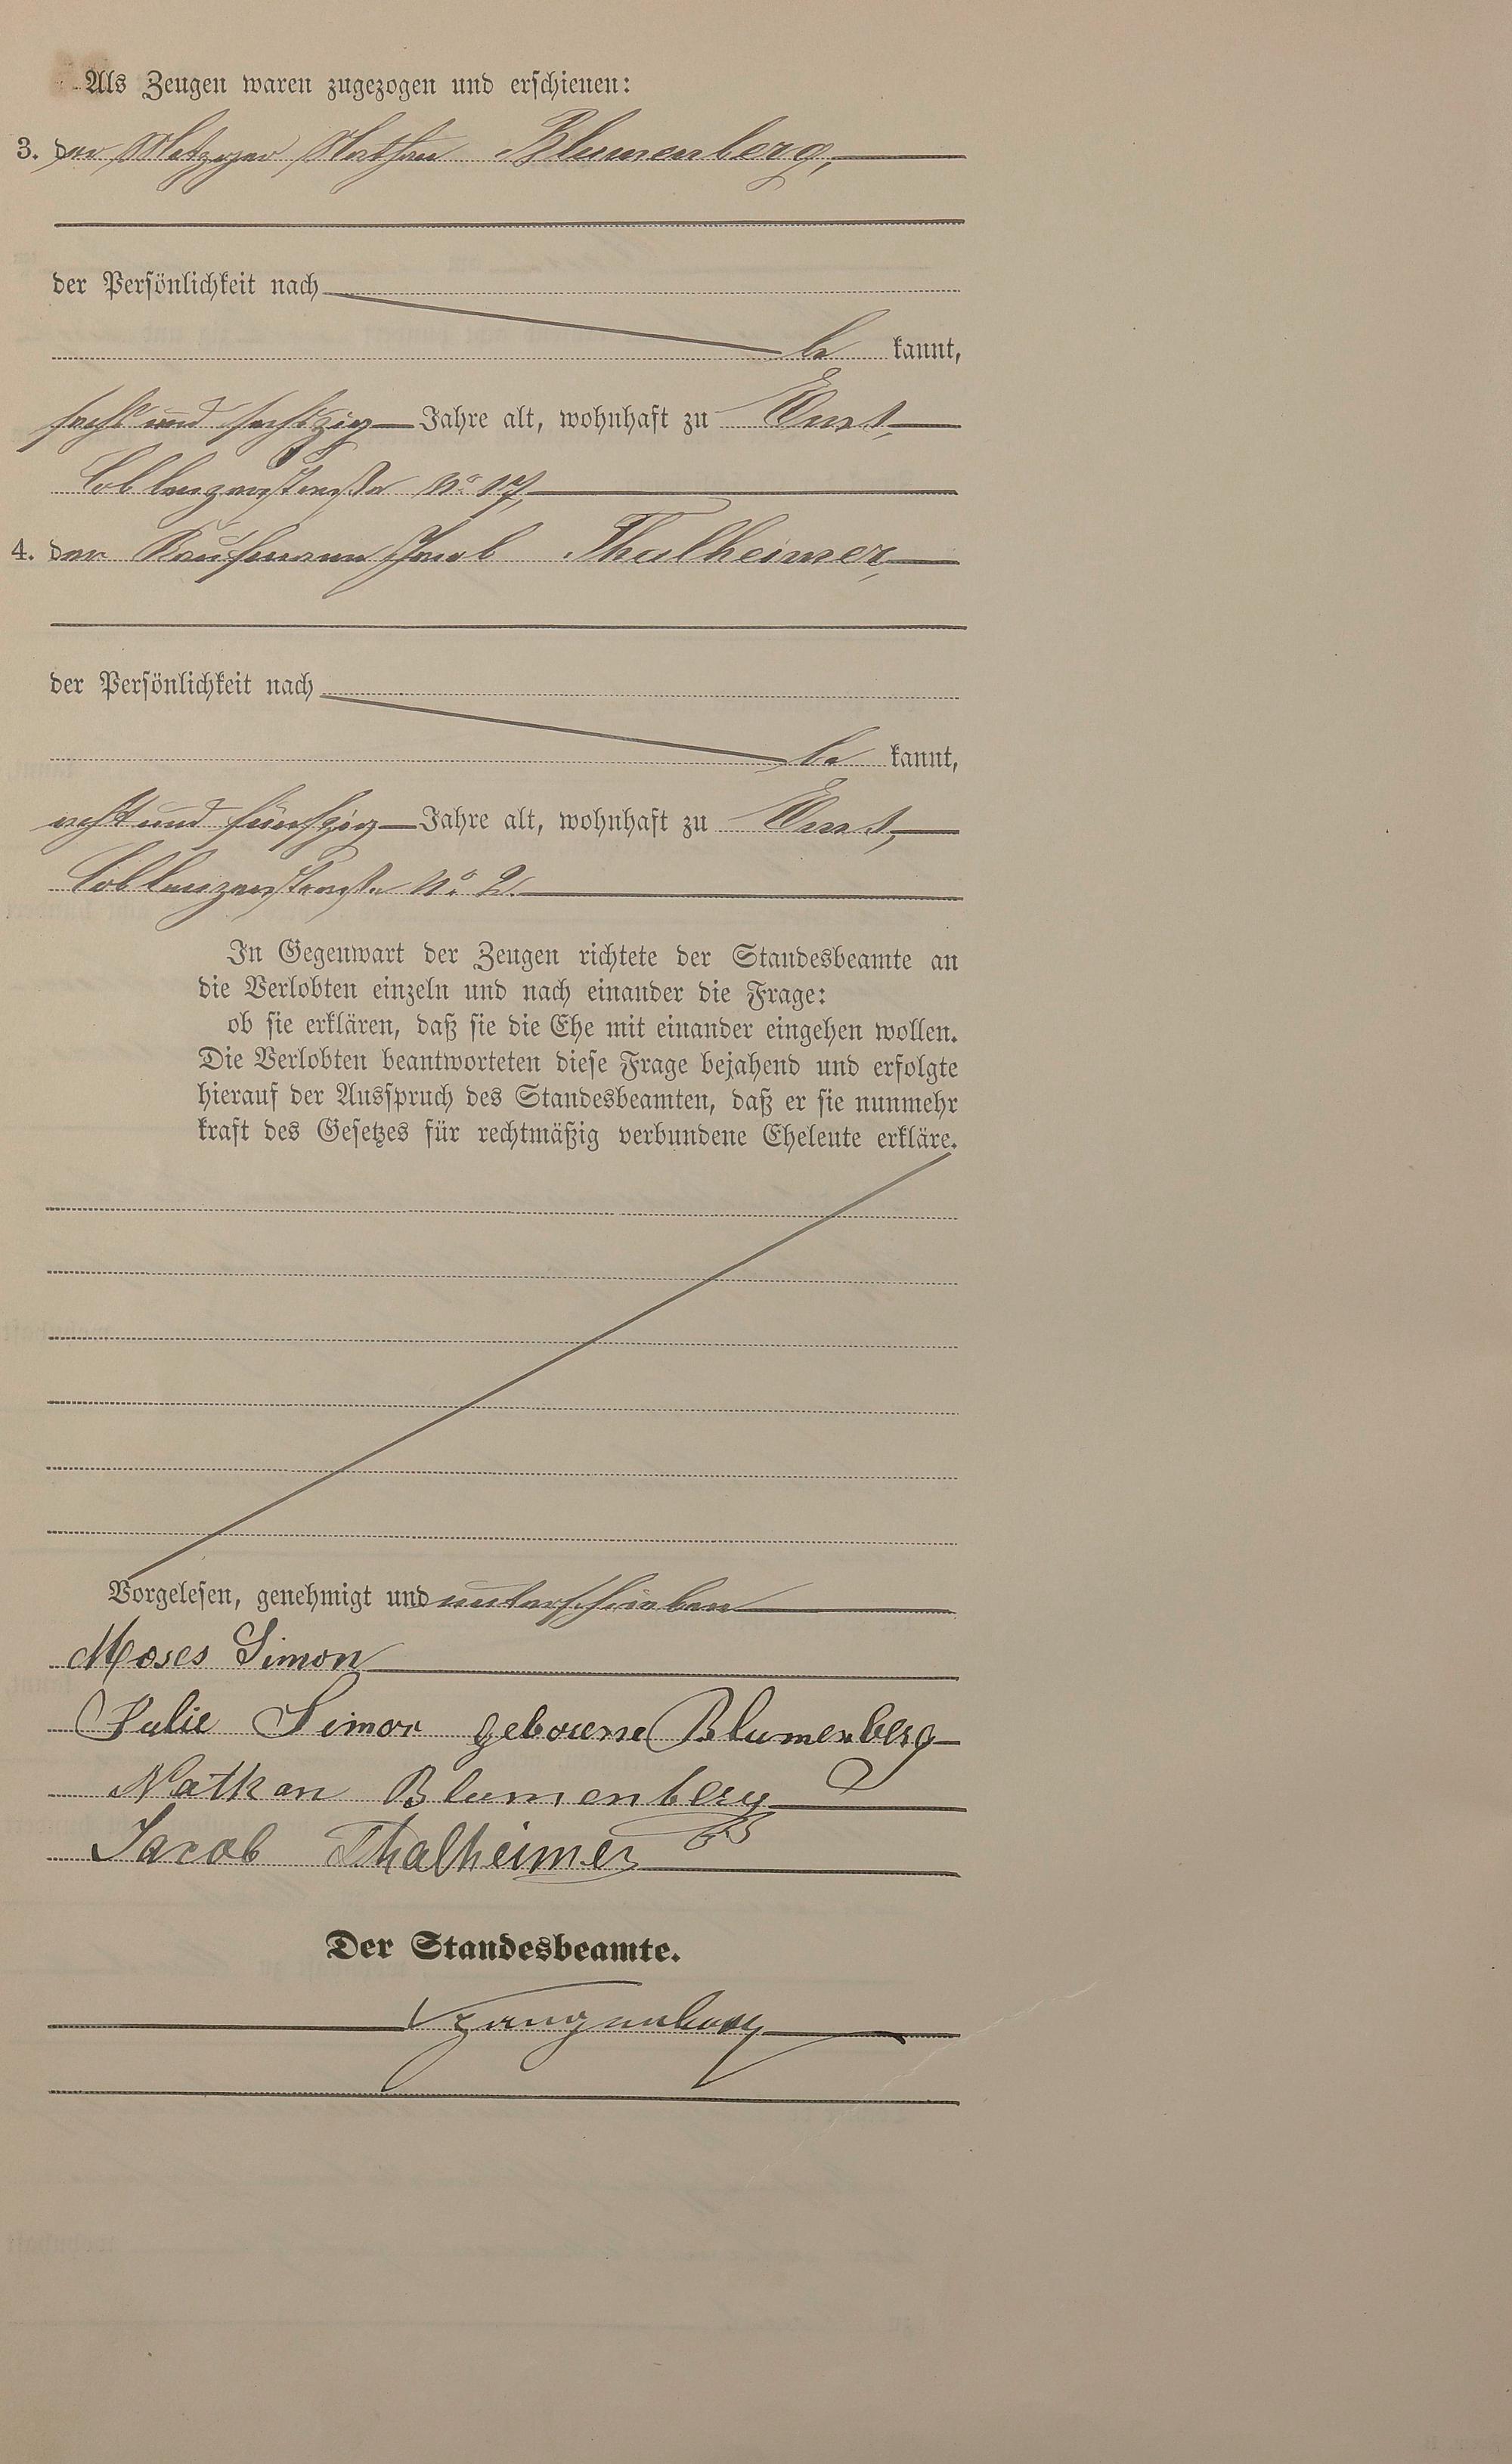 Als Zeugen waren zugezogen und erschienen:
3. der Metzger Nathan Blumenberg,
der Persönlichkeit nach
be kannt,
sechs und sechszig Jahre alt, wohnhaft zu
Coblenzerstraße No 17,
4. der Kaufmann Jacob Thalheimer,
der Persönlichkeit nach
be kannt,
acht und fünfzig Jahre alt, wohnhaft zu
Coblenzerstraße No 2.
In Gegenwart der Zeugen richtete der Standesbeamte an
die Verlobten einzeln und nach einander die Frage:
ob sie erklären, daß sie die Ehe mit einander eingehen wollen.
Die Verlobten beantworteten diese Frage bejahend und erfolgte
hierauf der Ausspruch des Standesbeamten, daß er sie nunmehr
kraft des Gesetzes für rechtmäßig verbundene Eheleute erkläre.
Vorgelesen, genehmigt und unterschrieben
Moses Simon
Julie Simon geborene Blumenberg
Nathan Blumenberg
Jacob Thalheimer
Der Standesbeamte.